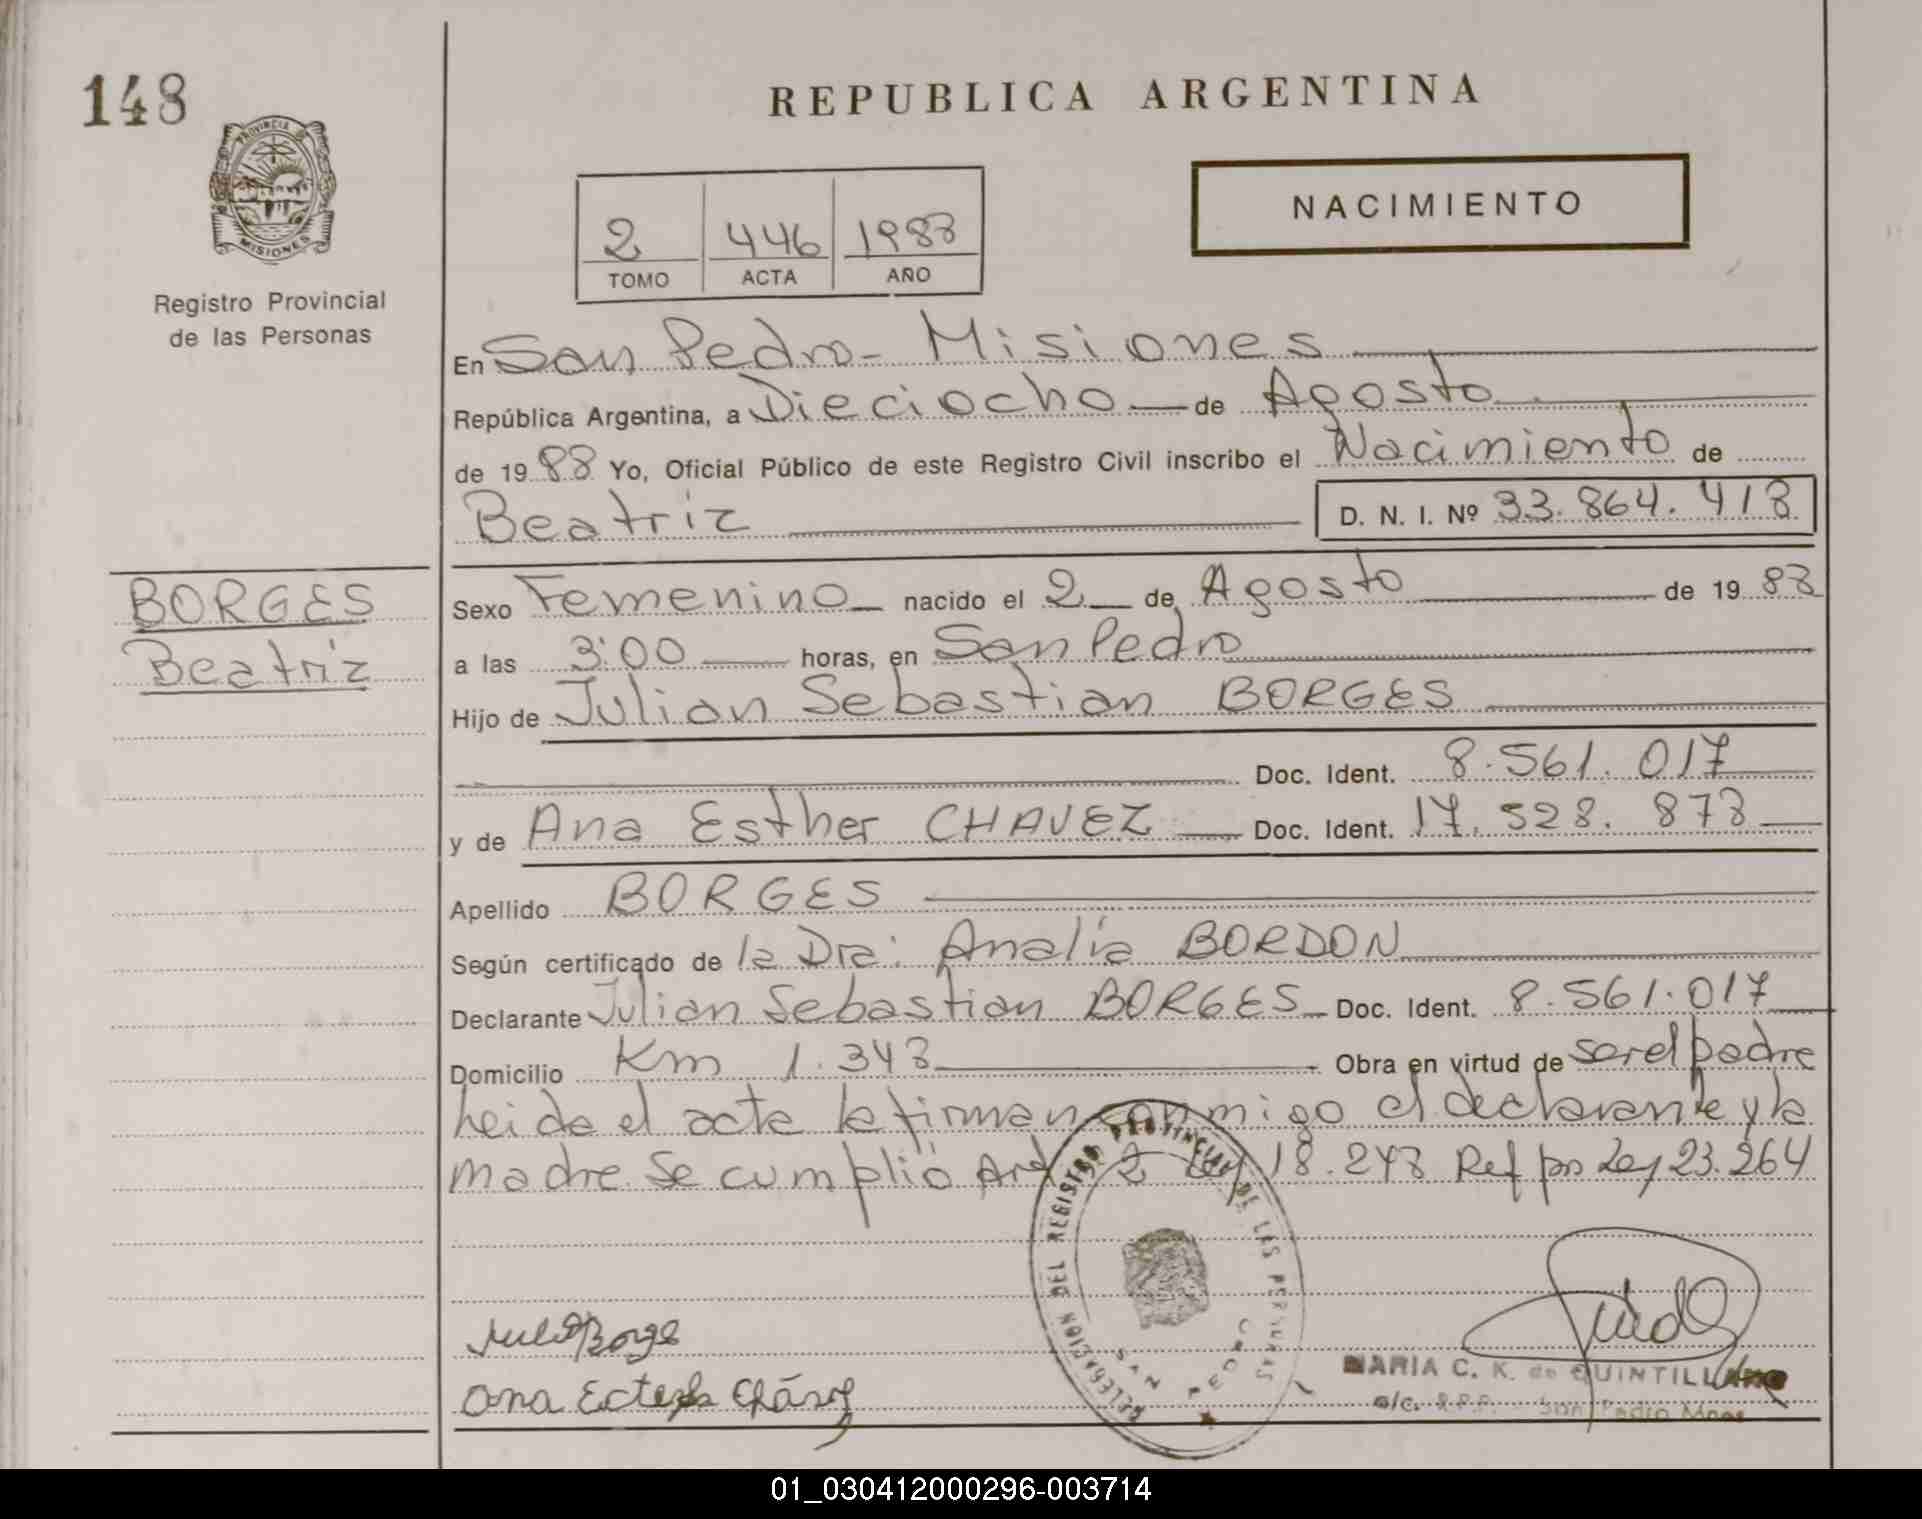 148
REPUBLICA ARGENTINA
PROVINCIA DE
MISIONES
Registro Provincial
de las Personas
2 446 1988
TOMO ACTA AÑO
NACIMIENTO
En San Pedro - Misiones
República Argentina, a Dieciocho de Agosto
de 19 88 Yo, Oficial Público de este Registro Civil inscribo el Nacimiento de
Beatriz D. N. I. Nº 33.864.418
BORGES
Beatriz
Sexo Femenino nacido el 2 de Agosto de 19 88
a las 3:00 horas, en San Pedro
Hijo de Julian Sebastian BORGES
Doc. Ident. 8.561.017
y de Ana Esther CHAVEZ Doc. Ident. 17.528.878
Apellido BORGES
Según certificado de la Dra: Analía BORDON
Declarante Julian Sebastian BORGES Doc. Ident. 8.561.017
Domicilio Km 1.348 Obra en virtud de ser el padre
heida el acta la firman conmigo el declarante y la
madre Se cumplió Art 2 Ley 18.248 Ref por Ley 23.264
DELEGACION DEL REGISTRO PROVINCIAL DE LAS PERSONAS
SAN PEDRO
Borges
Ana Chávez
MARIA C. K. de QUINTILLANO
a/c. R.P.P. - San Pedro Mnes
01_030412000296-003714